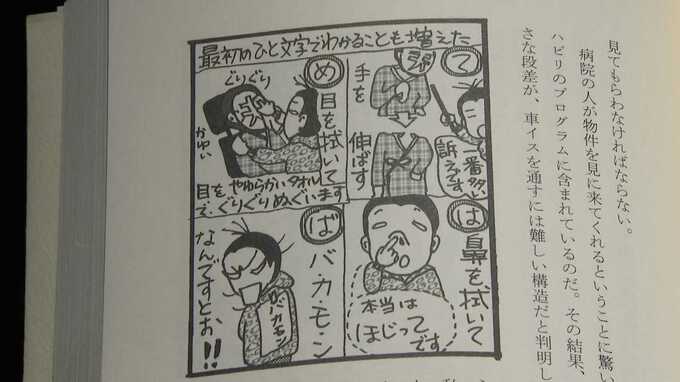 見てもらわなければならない。
病院の人が物件を見に来てくれるということに驚い
ハビリのプログラムに含まれているのだ。その結果、
さな段差が、車イスを通すには難しい構造だと判明し
最初のひと文字でわかることも増えた
て
手を
伸ばす
一番多い
訴えです。
め
目を拭いて
ぐりぐり
かゆい
目をやわらかいタオル
で、ぐりぐりぬぐいます
は
鼻を拭いて
本当は
ほじって
です
ば
バ・カ・モ・ン
バカモン
なんですとお!!